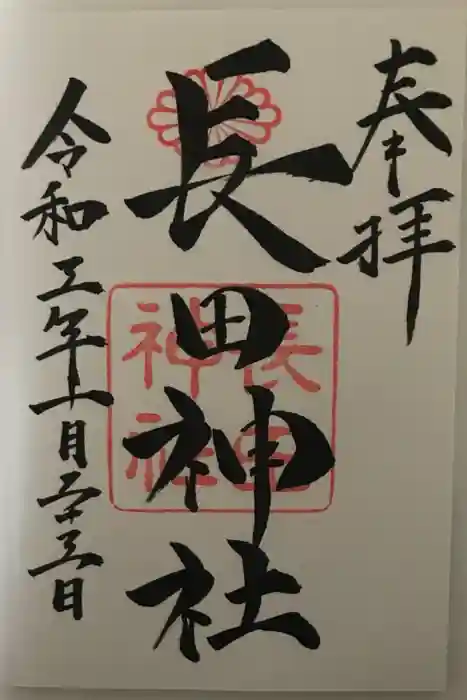 奉拝
長田神社
令和五年十一月二十三日
長田
神社